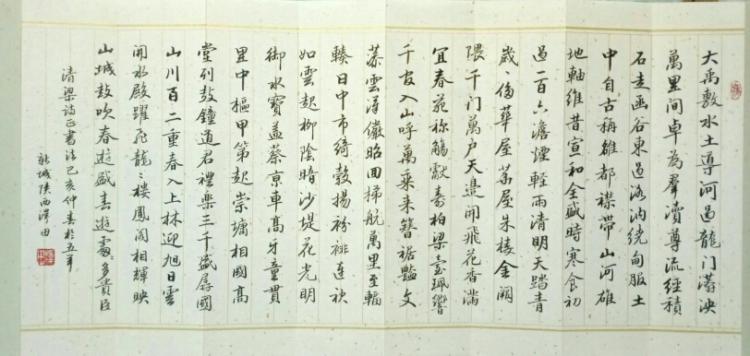 大禹敷水土導河過龍门蕩泱
萬里间卓為羣瀆尊流經積
石走函谷東過洛汭繞甸服土
中自古稱雄都襟带山河雄
地軸維昔宣和全盛時寒食初
過一百六澹煙輕雨清明天踏青
歲歲傍華屋華屋朱樓金闕
隈千门萬户天邊開飛花香滿
宜春苑称觴獻壽柏梁臺珮響
千官入山呼萬乘来簪裾豔文
慕雲漢徽昭回梯航萬里至輻
輳日中市綺縠揚紛緋連袂
如雲起柳陰暗沙堤花光明
御水寶蓋蔡京車高牙童貫
里中樞甲第起崇墉相國高
堂列鼓鐘道君禮樂三千盛孱國
山川百二重春入上林迎旭日雲
開水殿躍飛龍龍樓鳳阁相輝映
山城鼓吹春遊盛春遊處處多貴臣
清梁詩正書法己亥仲春於五羊